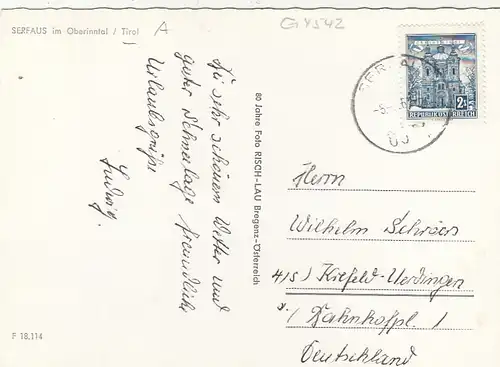 SERFAUS im Oberinntal / Tirol
A
G 4542
Zu sehr schönem Wetter und
guter Schneelage freundliche
Urlaubsgrüße
Ludwig.
80 Jahre Foto RISCH-LAU Bregenz-Österreich
REPUBLIK ÖSTERREICH
Herrn
Wilhelm Schröers
415) Krefeld-Uerdingen
Bahnhofpl. 1
Deutschland
F 18.114